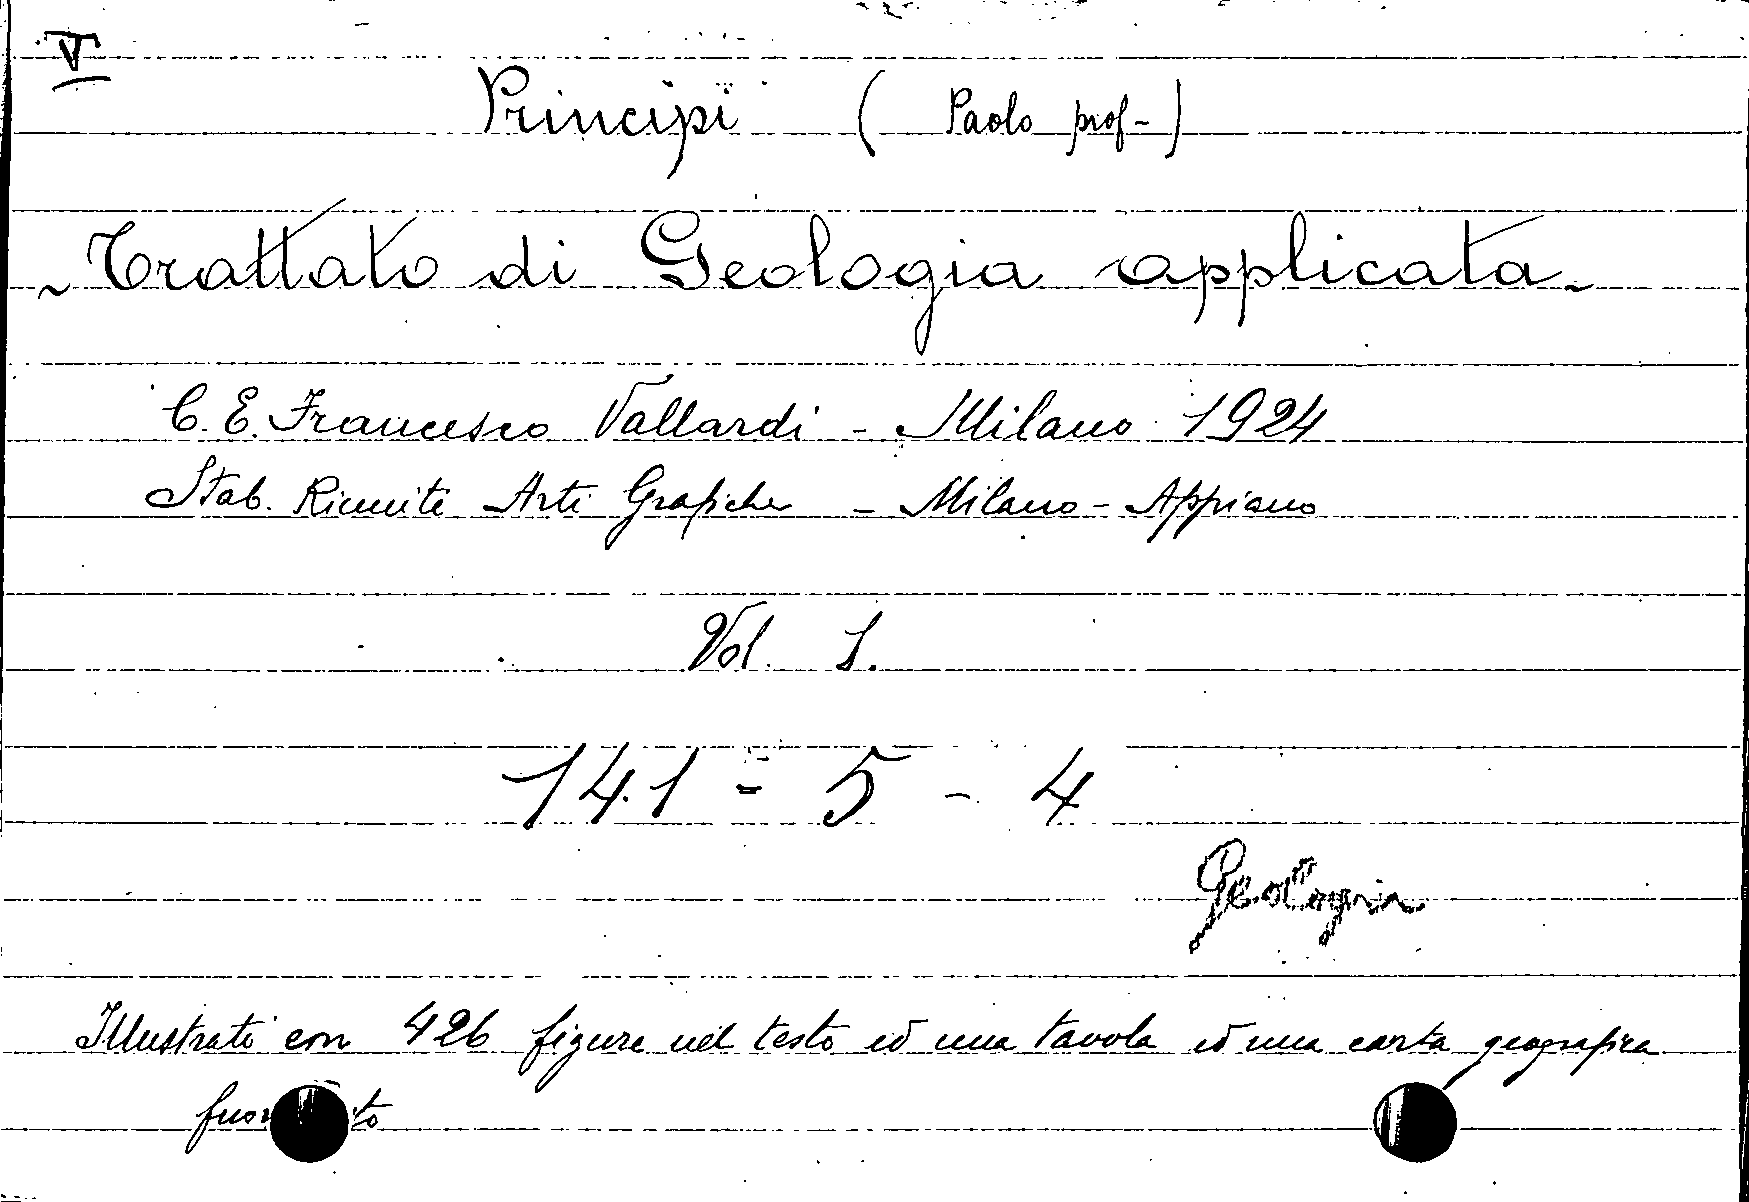 V
Principi ( Paolo prof-)
- Trattato di Geologia applicata -
C. E. Francesco Vallardi - Milano 1924
Stab. Riunite Arti Grafiche - Milano - Appiano
Vol. 1.
141 - 5 - 4
Geologia
Illustrato con 426 figure nel testo ed una tavola ed una carta geografica